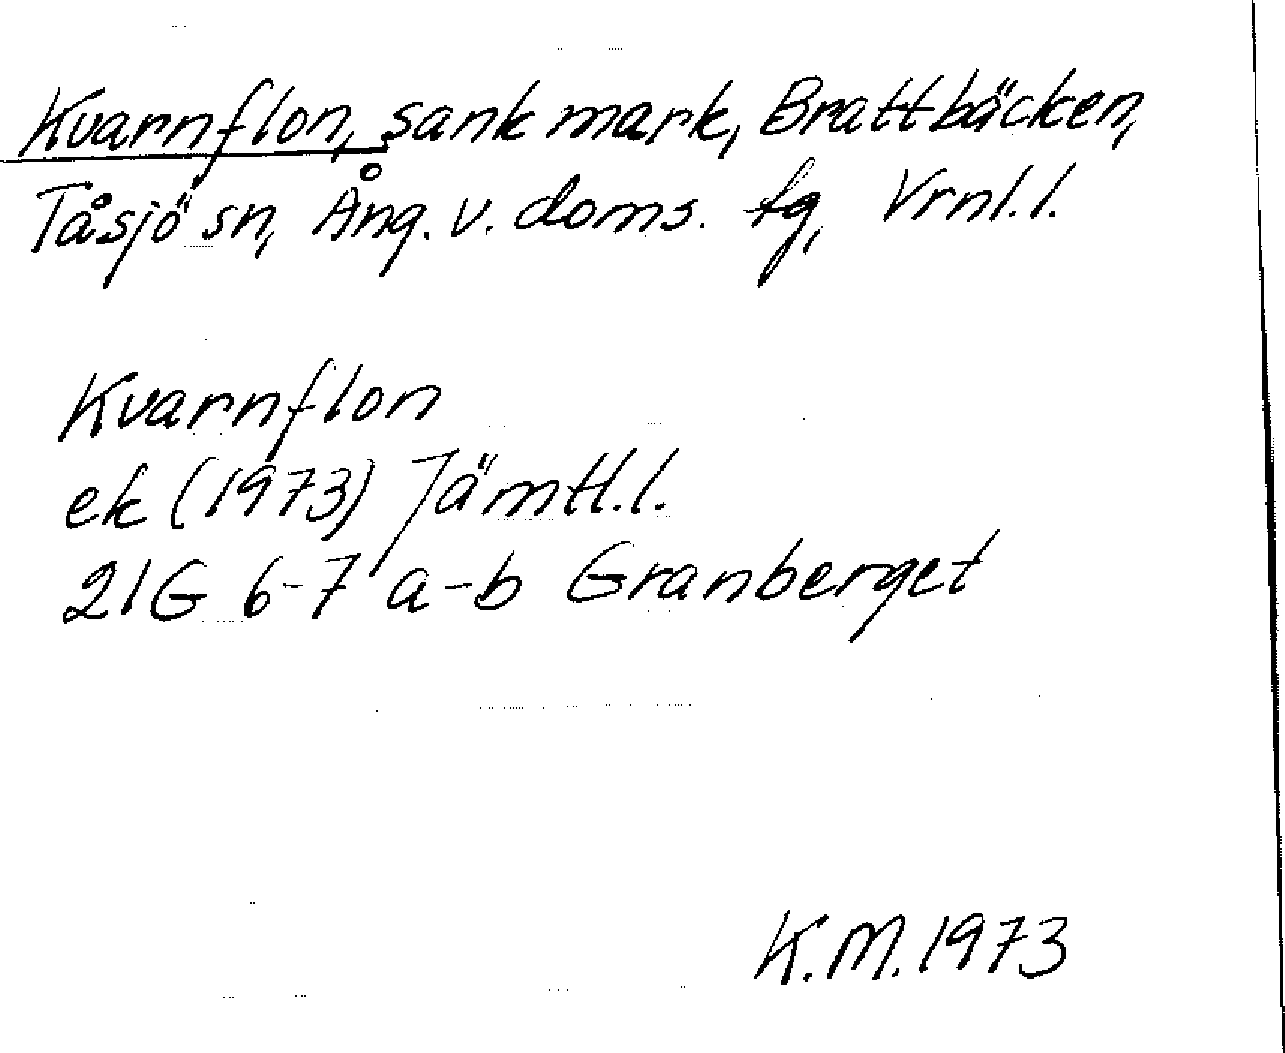 Kvarnflon, sank mark, Brattbäcken,
Tåsjö sn, Ång. v. doms. tg, Vrnl.l.
Kvarnflon
ek (1973) Jämtl.l.
21G 6-7 a-b Granberget
K.M. 1973